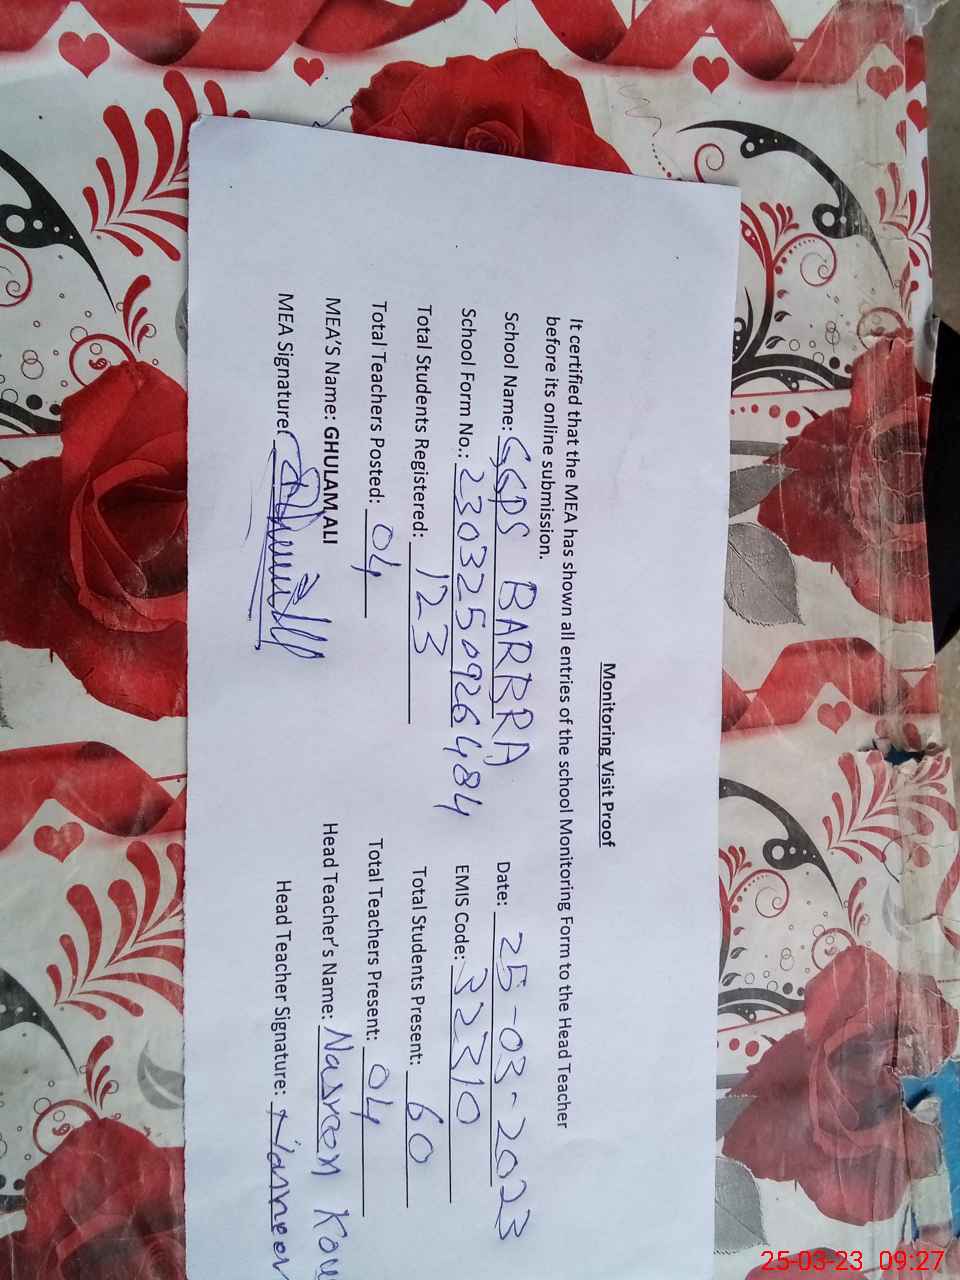 Monitoring Visit Proof
It certified that the MEA has shown all entries of the school Monitoring Form to the Head Teacher
before its online submission.
School Name: GGPS BARBRA Date: 25-03-2023
School Form No.: 2303250926484 EMIS Code: 32310
Total Students Registered: 123 Total Students Present: 60
Total Teachers Posted: 04 Total Teachers Present: 04
MEA'S Name: GHULAM ALI Head Teacher's Name: Nasreen
MEA Signature: Head Teacher Signature:
25-03-23 09:27